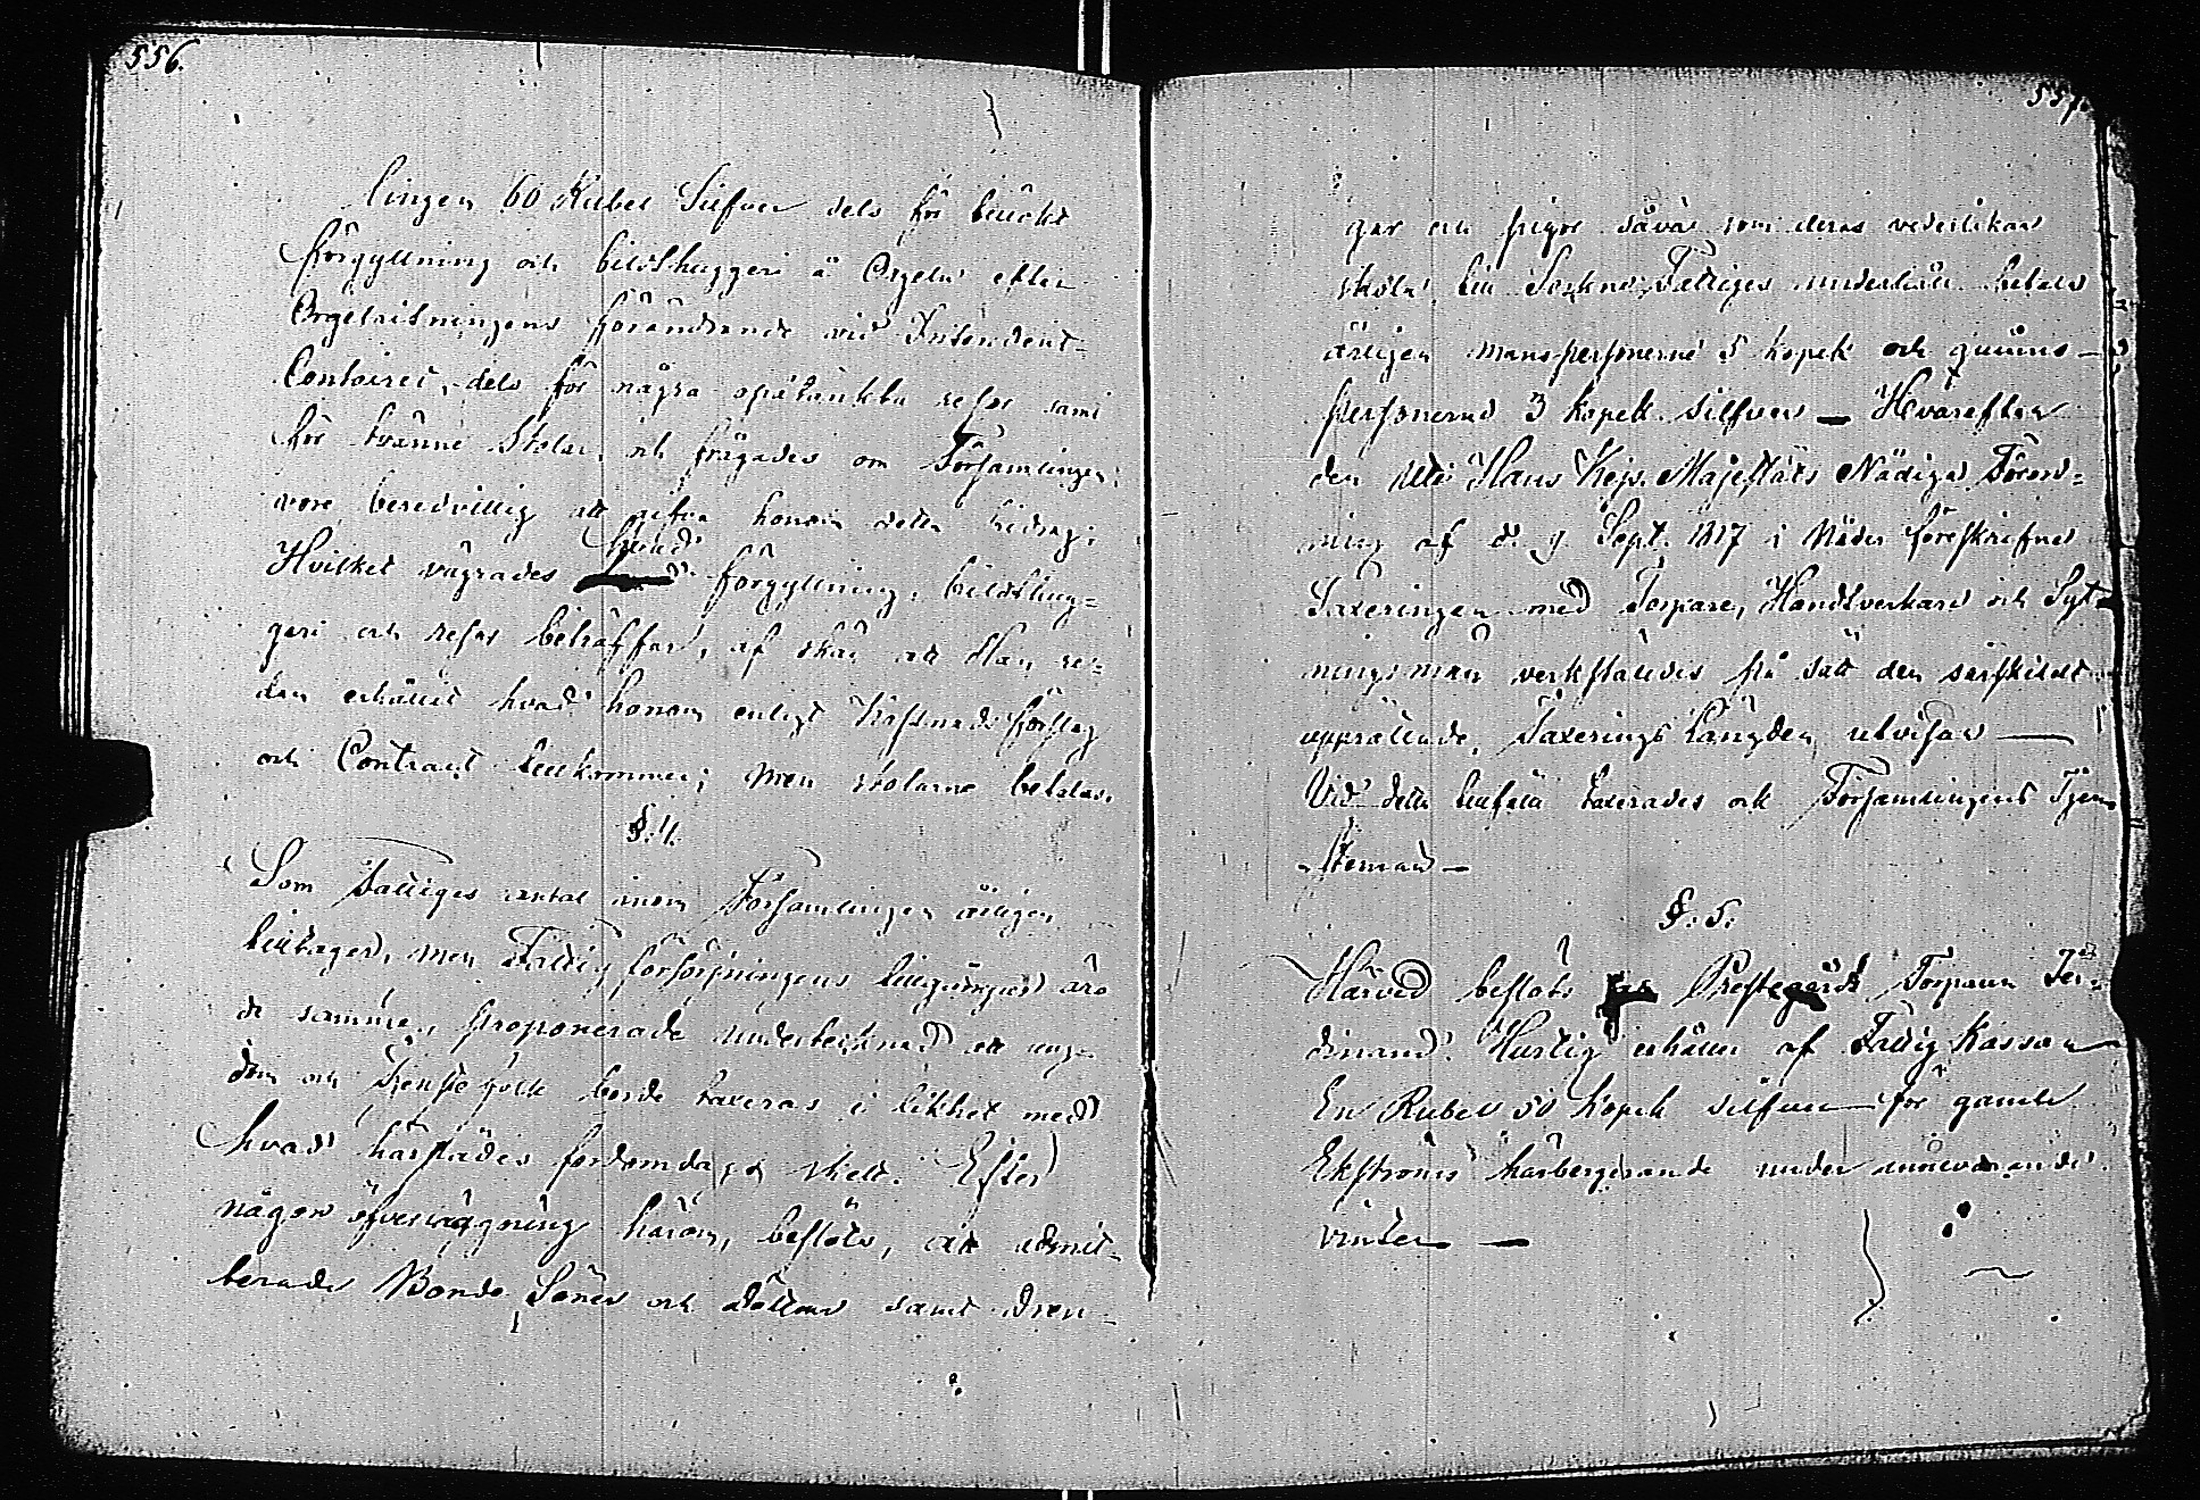 556.
lingen 60 Rubel Silfver dels för tillökt
förgyllning och bildthuggeri å Orgeln efter
Orgelritningens förändrande vid Intendent-
Contoiret, dels för några opåtänkta resor samt
för tvänne Stolar, och frågades om Församlingen
vore beredvillig att gifva honom detta bidrag;
Hvilket vägrades hvad förgyllning, bildthug=
geri och resor beträffar, af skäl att Han re=
dan erhållit hvad honom enligt Kostnads förslag
och Contract tillkommer; men stolarne betalas.
§. 4.
Som Fattiges antal inom Församlingen årligen
tilltager, men Fattig försörjningens tillgångar äro
de samma, proponerade undertecknad att ung-
dom och Tjenste folk borde taxeras i likhet med
hvad härstädes fordomdags skett. Efter
någon öfverläggning härom, beslöts, att admit-
terade Bonde Söner och Döttrar samt dren-
557.
gar och pigor såväl som deras vederlikar
skola till Sockne Fattiges underhåll betala
årligen manspersonerne 5 kopek och qvinns-
personerna 3 kopek silfver — Hvarefter
den uti Hans Kejs. Majestäts Nådiga Förord=
ning af d. 9 Sept. 1817 i Nåder föreskrifna
Taxeringen med Torpare, Handtverkare och Syt-
ningsmän verkställdes på sätt den särskildt
upprättade Taxerings Längden utvisar —
Vid detta tillfälle taxerades ock Församlingens Tjen-
stemän —
§. 5.
Härvid beslöts Prestegårds Torparen Fer=
dinand Hurtig erhåller af Fattig Kassan
En Rubel 50 Kopek silfver för gamle
Ekströms härbergerande under innevarande
vinter —